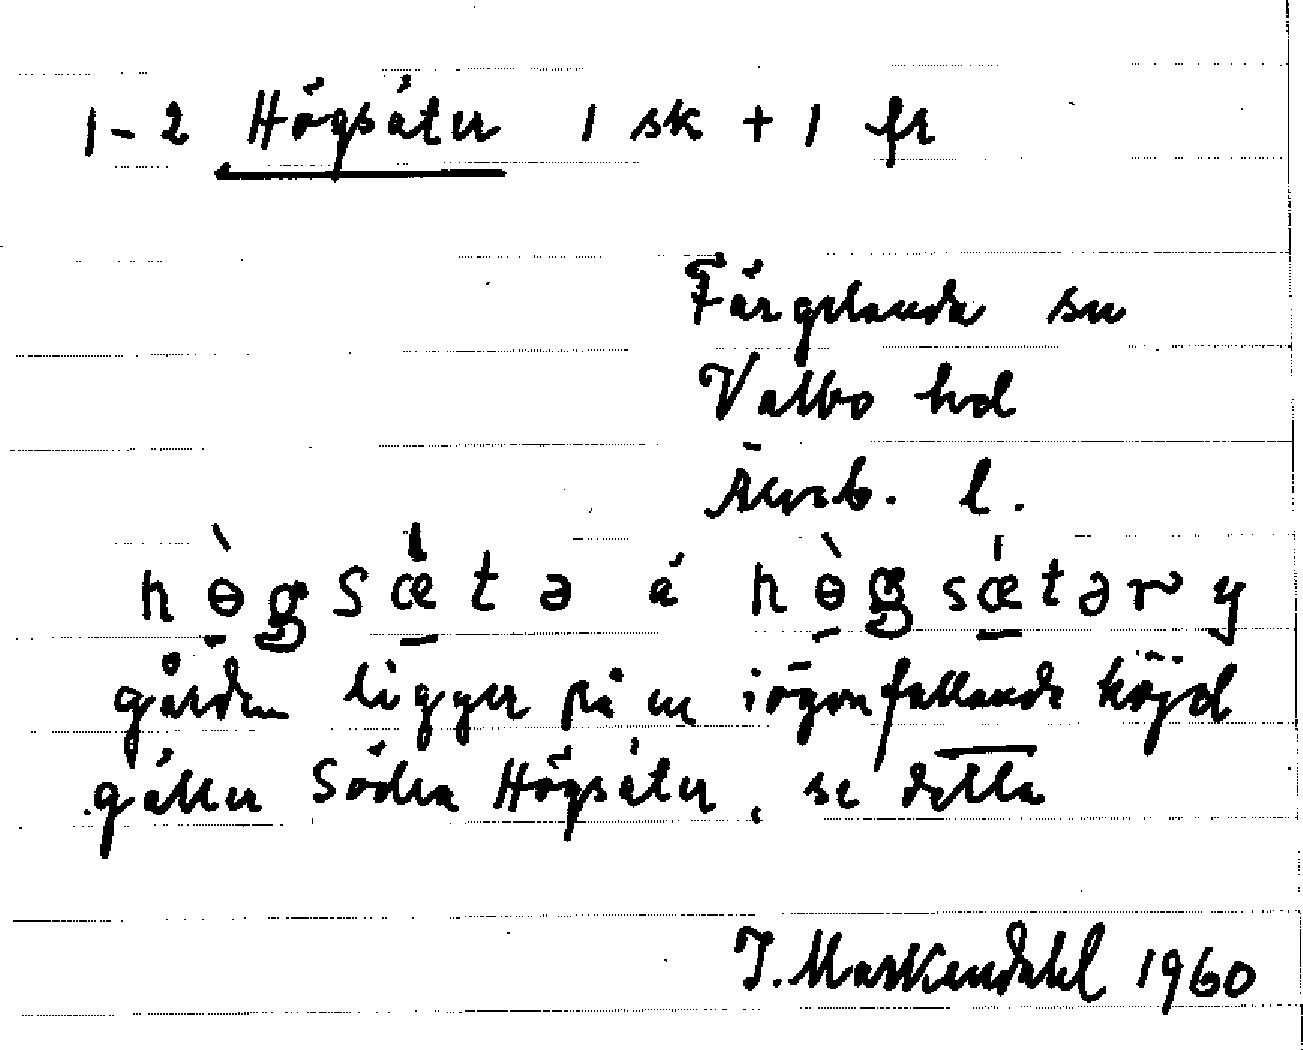 1-2 Högsäter 1 sk + 1 fr
Färgelanda sn
Valbo hd
Älvsb. l.
hɵ̀gsǽtə á hɵ̀gsǽtəry
gården ligger på en iögonfallande höjd
gäller Södra Högsäter, se detta
I. Maskendahl 1960